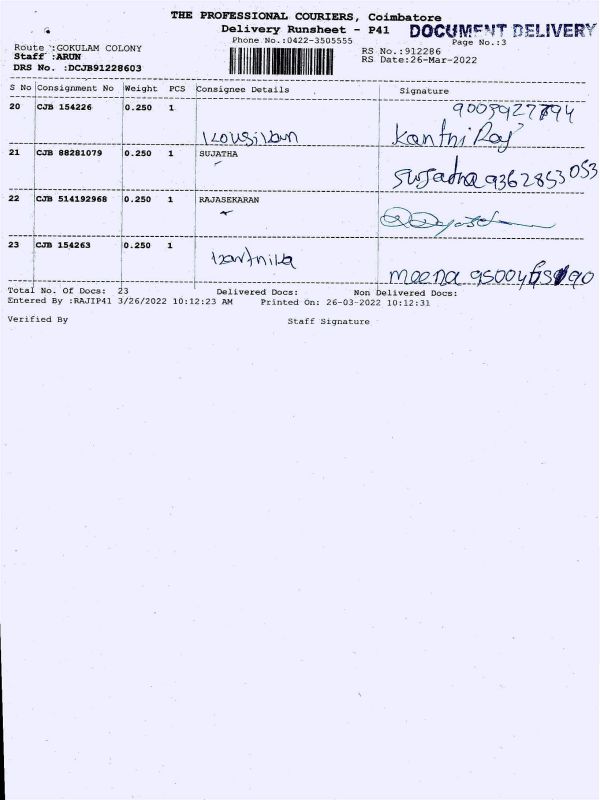 THE PROFESSIONAL COURIERS, Coimbatore
Delivery Runsheet - P41 DOCUMENT DELIVERY
Phone No.:0422-3505555 Page No.:3
Route :GOKULAM COLONY RS No.:912286
Staff :ARUN RS Date:26-Mar-2022
DRS No. :DCJB91228603
S No Consignment No Weight PCS Consignee Details Signature
20 CJB 154226 0.250 1 Kousikan
Kanthi Raj
21 CJB 88281079 0.250 1 SUJATHA
Sujatha 9362853053
22 CJB 514192968 0.250 1 RAJASEKARAN
23 CJB 154263 0.250 1 Karthika
meena
Total No. Of Docs: 23 Delivered Docs: Non Delivered Docs:
Entered By :RAJIP41 3/26/2022 10:12:23 AM Printed On: 26-03-2022 10:12:31
Verified By Staff Signature